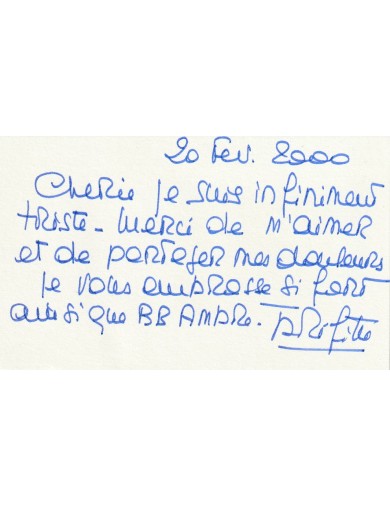 20 Fev. 2000
Cherie je suis infiniment
triste - merci de m'aimer
et de partager mes douleurs
je vous embrasse si fort
ainsi que BB AMBRE.